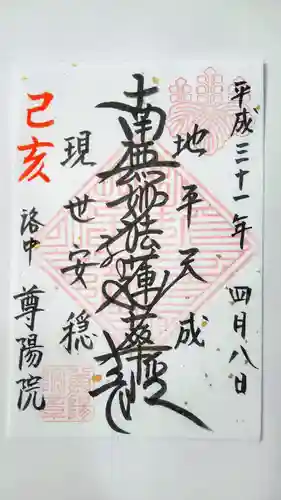 平成三十一年 四月八日
地平天成
南無妙法蓮華経
現世安穏
己亥
洛中 尊陽院